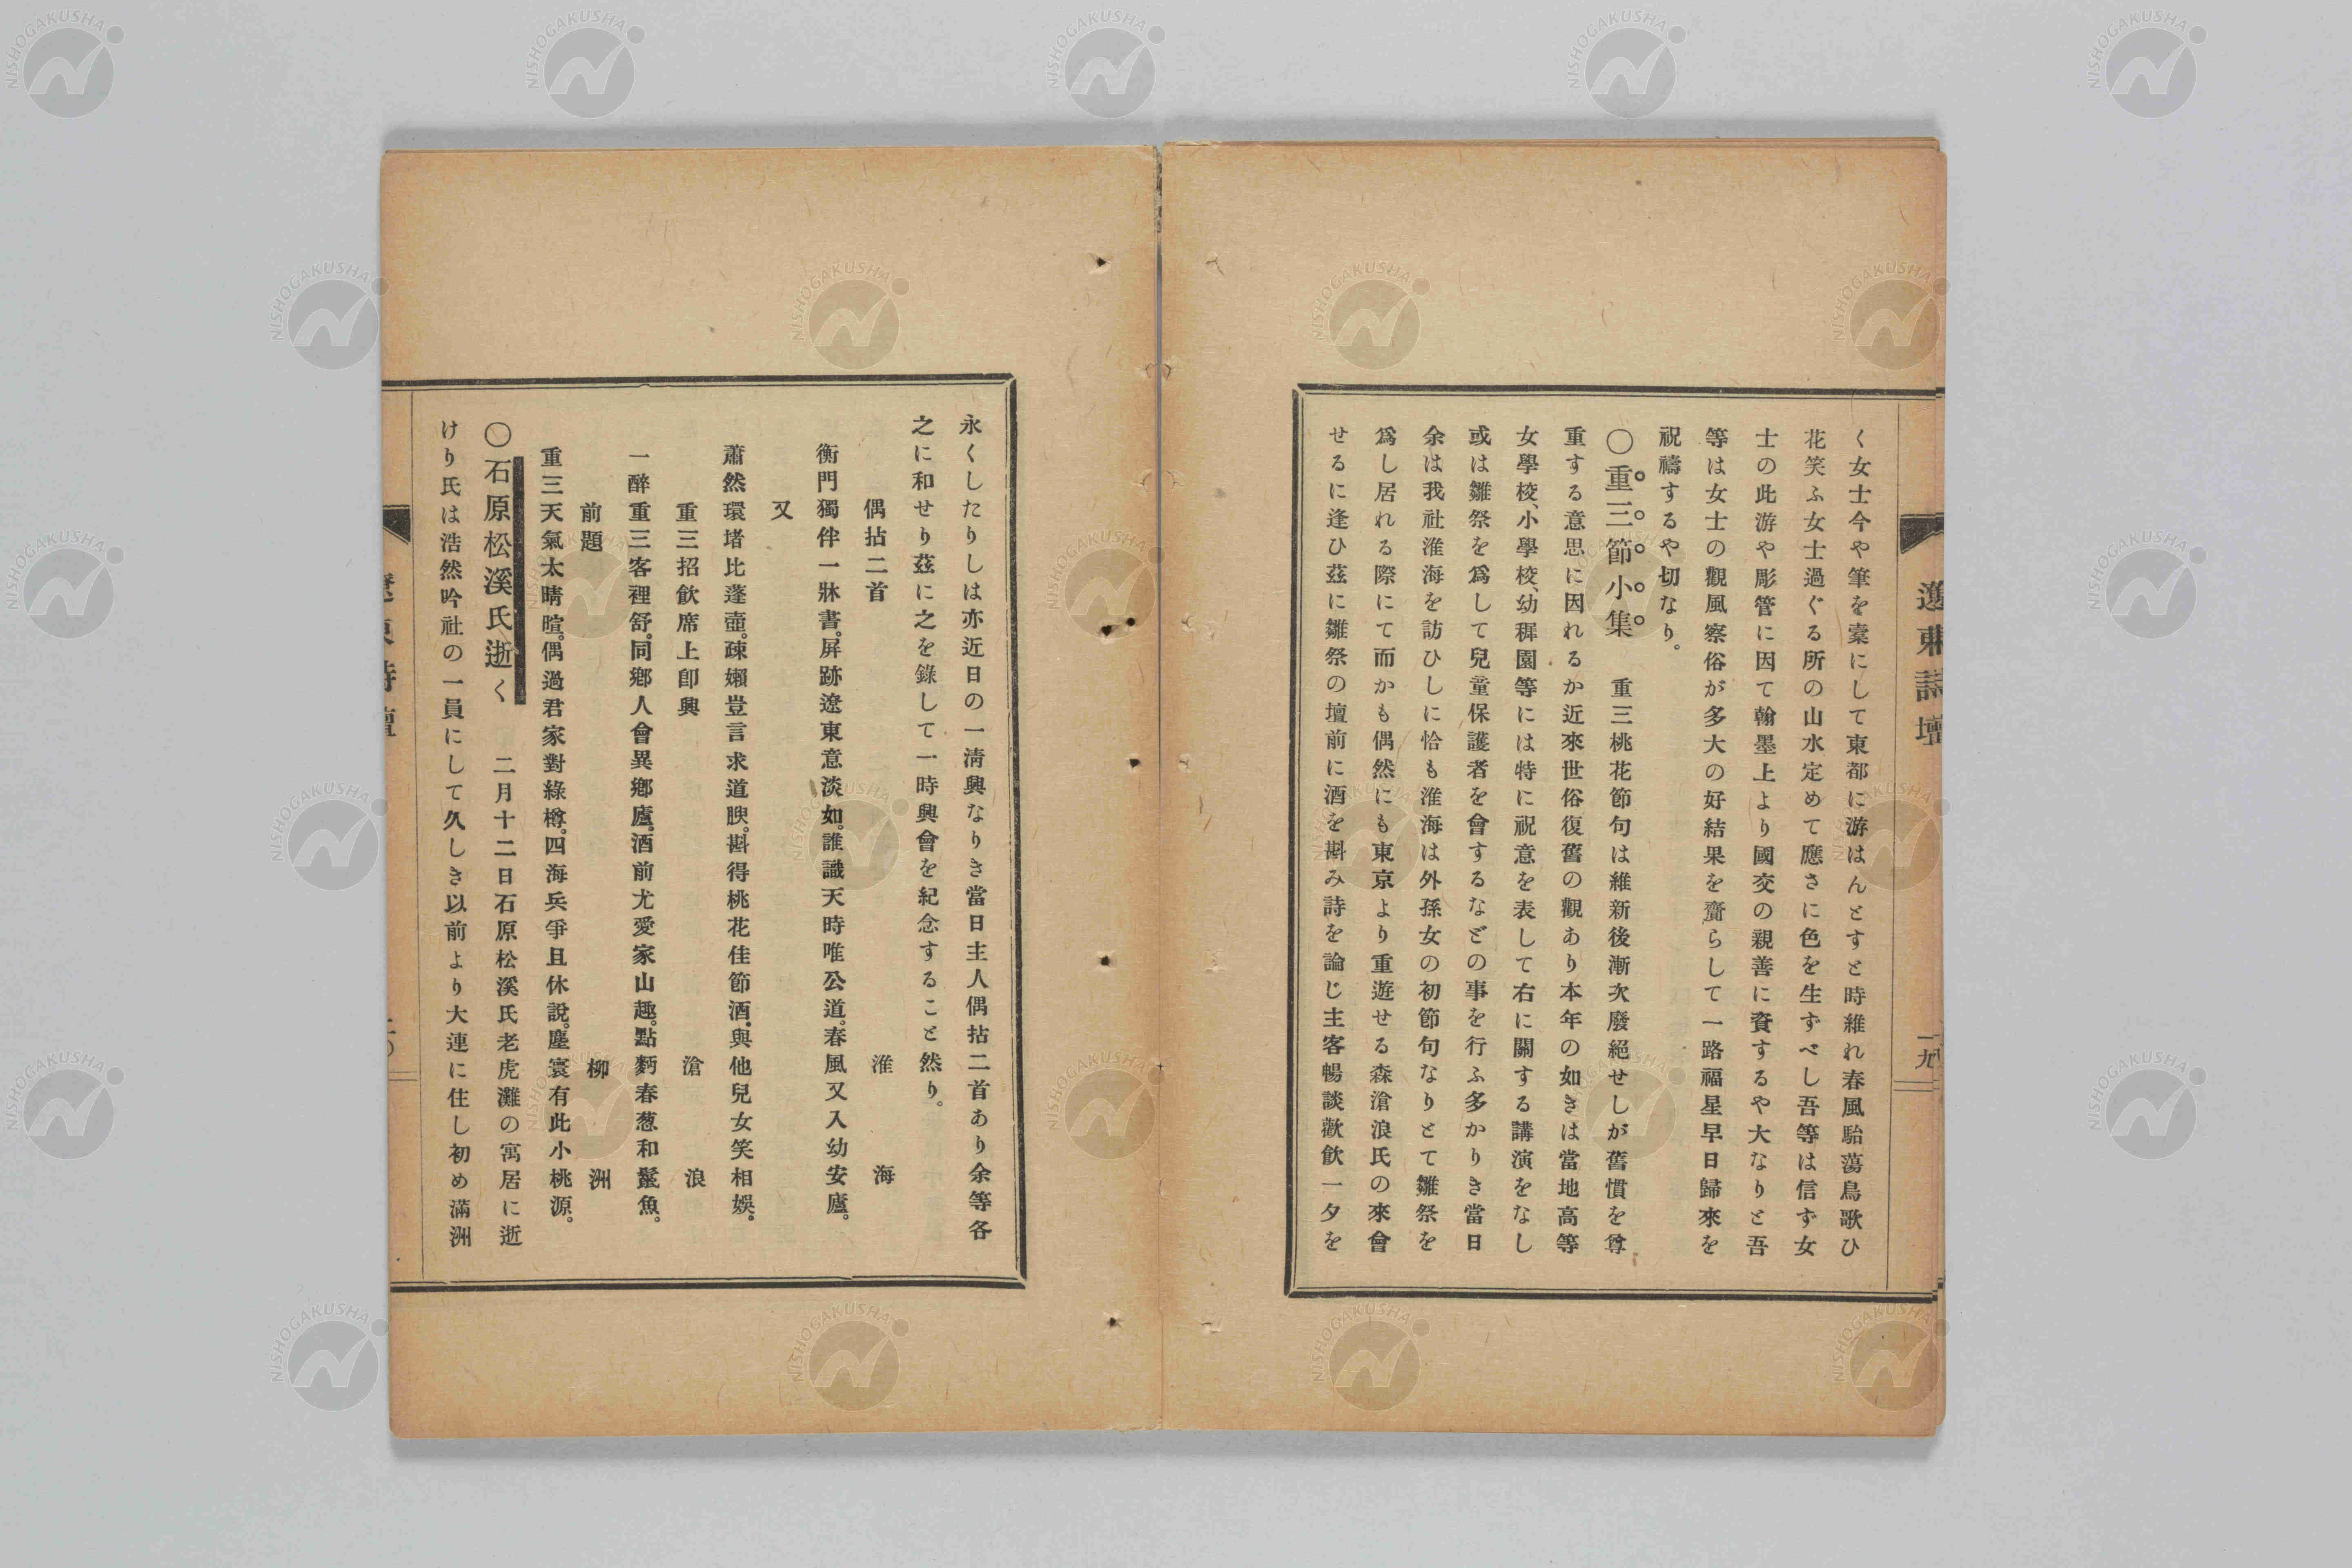 く女士今や筆を橐にして東都に游はんとすと時維れ春風駘蕩鳥歌ひ
花笑ふ女士過ぐる所の山水定めて應さに色を生ずべし吾等は信ず女
士の此游や彫管に因て翰墨上より國交の親善に資するや大なりと吾
等は女士の觀風察俗が多大の好結果を齎らして一路福星早日歸來を
祝禱するや切なり。
〇重三節小集 重三桃花節句は維新後漸次廢絕せしが舊慣を尊
重する意思に因れるか近來世俗復舊の觀あり本年の如きは當地高等
女學校、小學校、幼稺園等には特に祝意を表して右に關する講演をなし
或は雛祭を爲して兒童保護者を會するなどの事を行ふ多かりき當日
余は我社淮海を訪ひしに恰も淮海は外孫女の初節句なりとて雛祭を
爲し居れる際にて而かも偶然にも東京より重遊せる森滄浪氏の來會
せるに逢ひ茲に雛祭の壇前に酒を斟み詩を論じ主客暢談歡飮一夕を
遼東詩壇
一九
永くしたりしは亦近日の一淸興なりき當日主人偶拈二首あり余等各
之に和せり茲に之を錄して一時興會を紀念すること然り。
偶拈二首 淮海
衡門獨伴一牀書。屛跡遼東意淡如。誰識天時唯公道。春風又入幼安廬。
又
蕭然環堵比蓬壺。疎嬾豈言求道腴。斟得桃花佳節酒。與他兒女笑相娛。
重三招飮席上卽興 滄浪
一醉重三客裡舒。同鄕人會異鄕廬。酒前尤愛家山趣。點麪春葱和鬣魚。
前題 柳洲
重三天氣太晴暄。偶過君家對綠樽。四海兵爭且休說。塵寰有此小桃源。
〇石原松溪氏逝く 二月十二日石原松溪氏老虎灘の寓居に逝
けり氏は浩然吟社の一員にして久しき以前より大連に住し初め滿洲
NISHOGAKUSHA